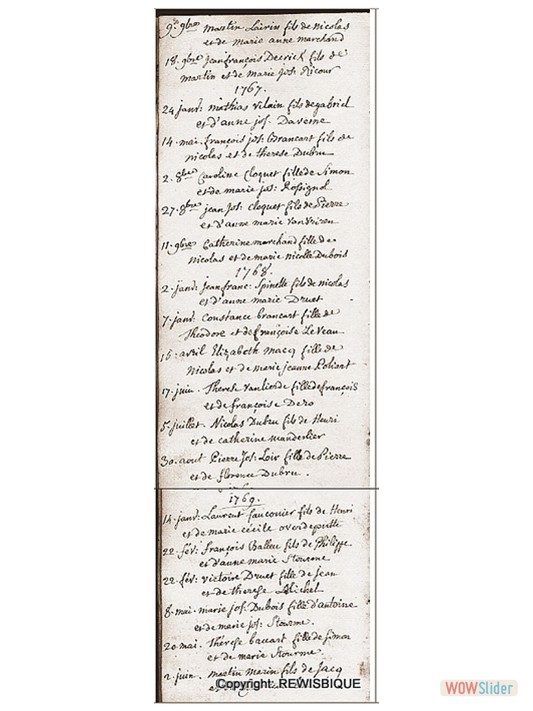 9. 9bres martin Lairin fils de nicolas
et de marie anne marchand
18. 9bre jean françois Derrick fils de
martin et de marie jos: Ricour
1767.
24 janv: mathias vilain fils de gabriel
et d'anne jos. Daverne
14. mai. françois jos: brancart fils de
nicolas et de therese Dubru
2. 8bre Caroline Cloquet fille de Simon
et de marie jos: Rosignol
27. 8bre jean jos: cloquet fils de Pierre
et d'anne marie
11. 9bre Catherine marchand fille de
nicolas et de marie nicolle Dubois
1768.
2. janv: jean franc: Spinette fils de nicolas
et d'anne marie Druet
7. janv: constance brancart fille de
Theodore et de françoise Leveau
15. avril Elizabeth macq fille de
nicolas et de marie jeanne Poliart
17. juin. Therese vanlierde fille de françois
et de françoise Dero
5. juillet. Nicolas Dubru fils de Henri
et de catherine
30. aout Pierre Jos: Loir fille de Pierre
et de florence Dubru.
1769.
14. janv: Laurent fauconier fils de Henri
et de marie cécile
22. fév: françois Balleu fils de Philippe
et d'anne marie Stourme
22. fév: victoire Druet fille de jean
et de therese Michel
8. mai. marie jos. Dubois fille d'antoine
et de marie jos: Stourme.
20 mai. Therese baccart fille de simon
et de marie Stourme.
2 juin. martin marin fils de Jacq
Copyright: REWISBIQUE
WOWSlider